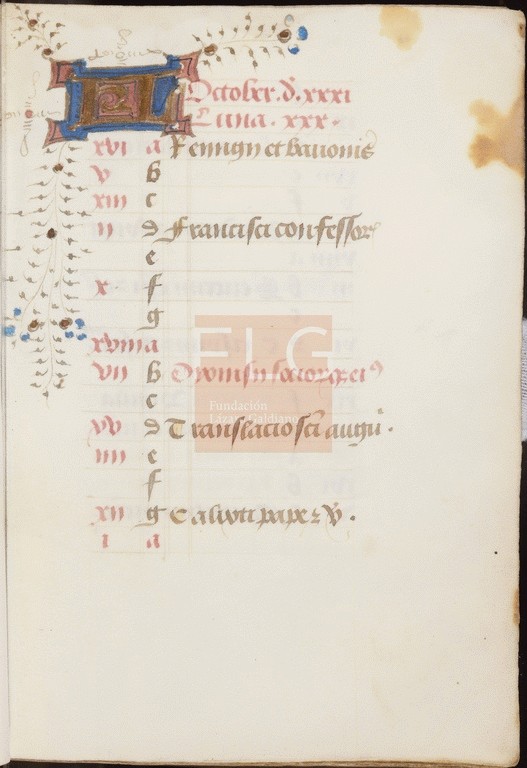 KL October. d. xxxi
Luna. xxx.
xvi a Remigii et bauonis
v b
xiii c
ii d Francisci confessor
e
x f
g
xviii a
vii b Dyonisii socior₉ ei⁹
c
xv d Translacio sci augu.
iiii e
f
xii g Calixti pape z
i a
FLG
Fundación
Lázaro Galdiano